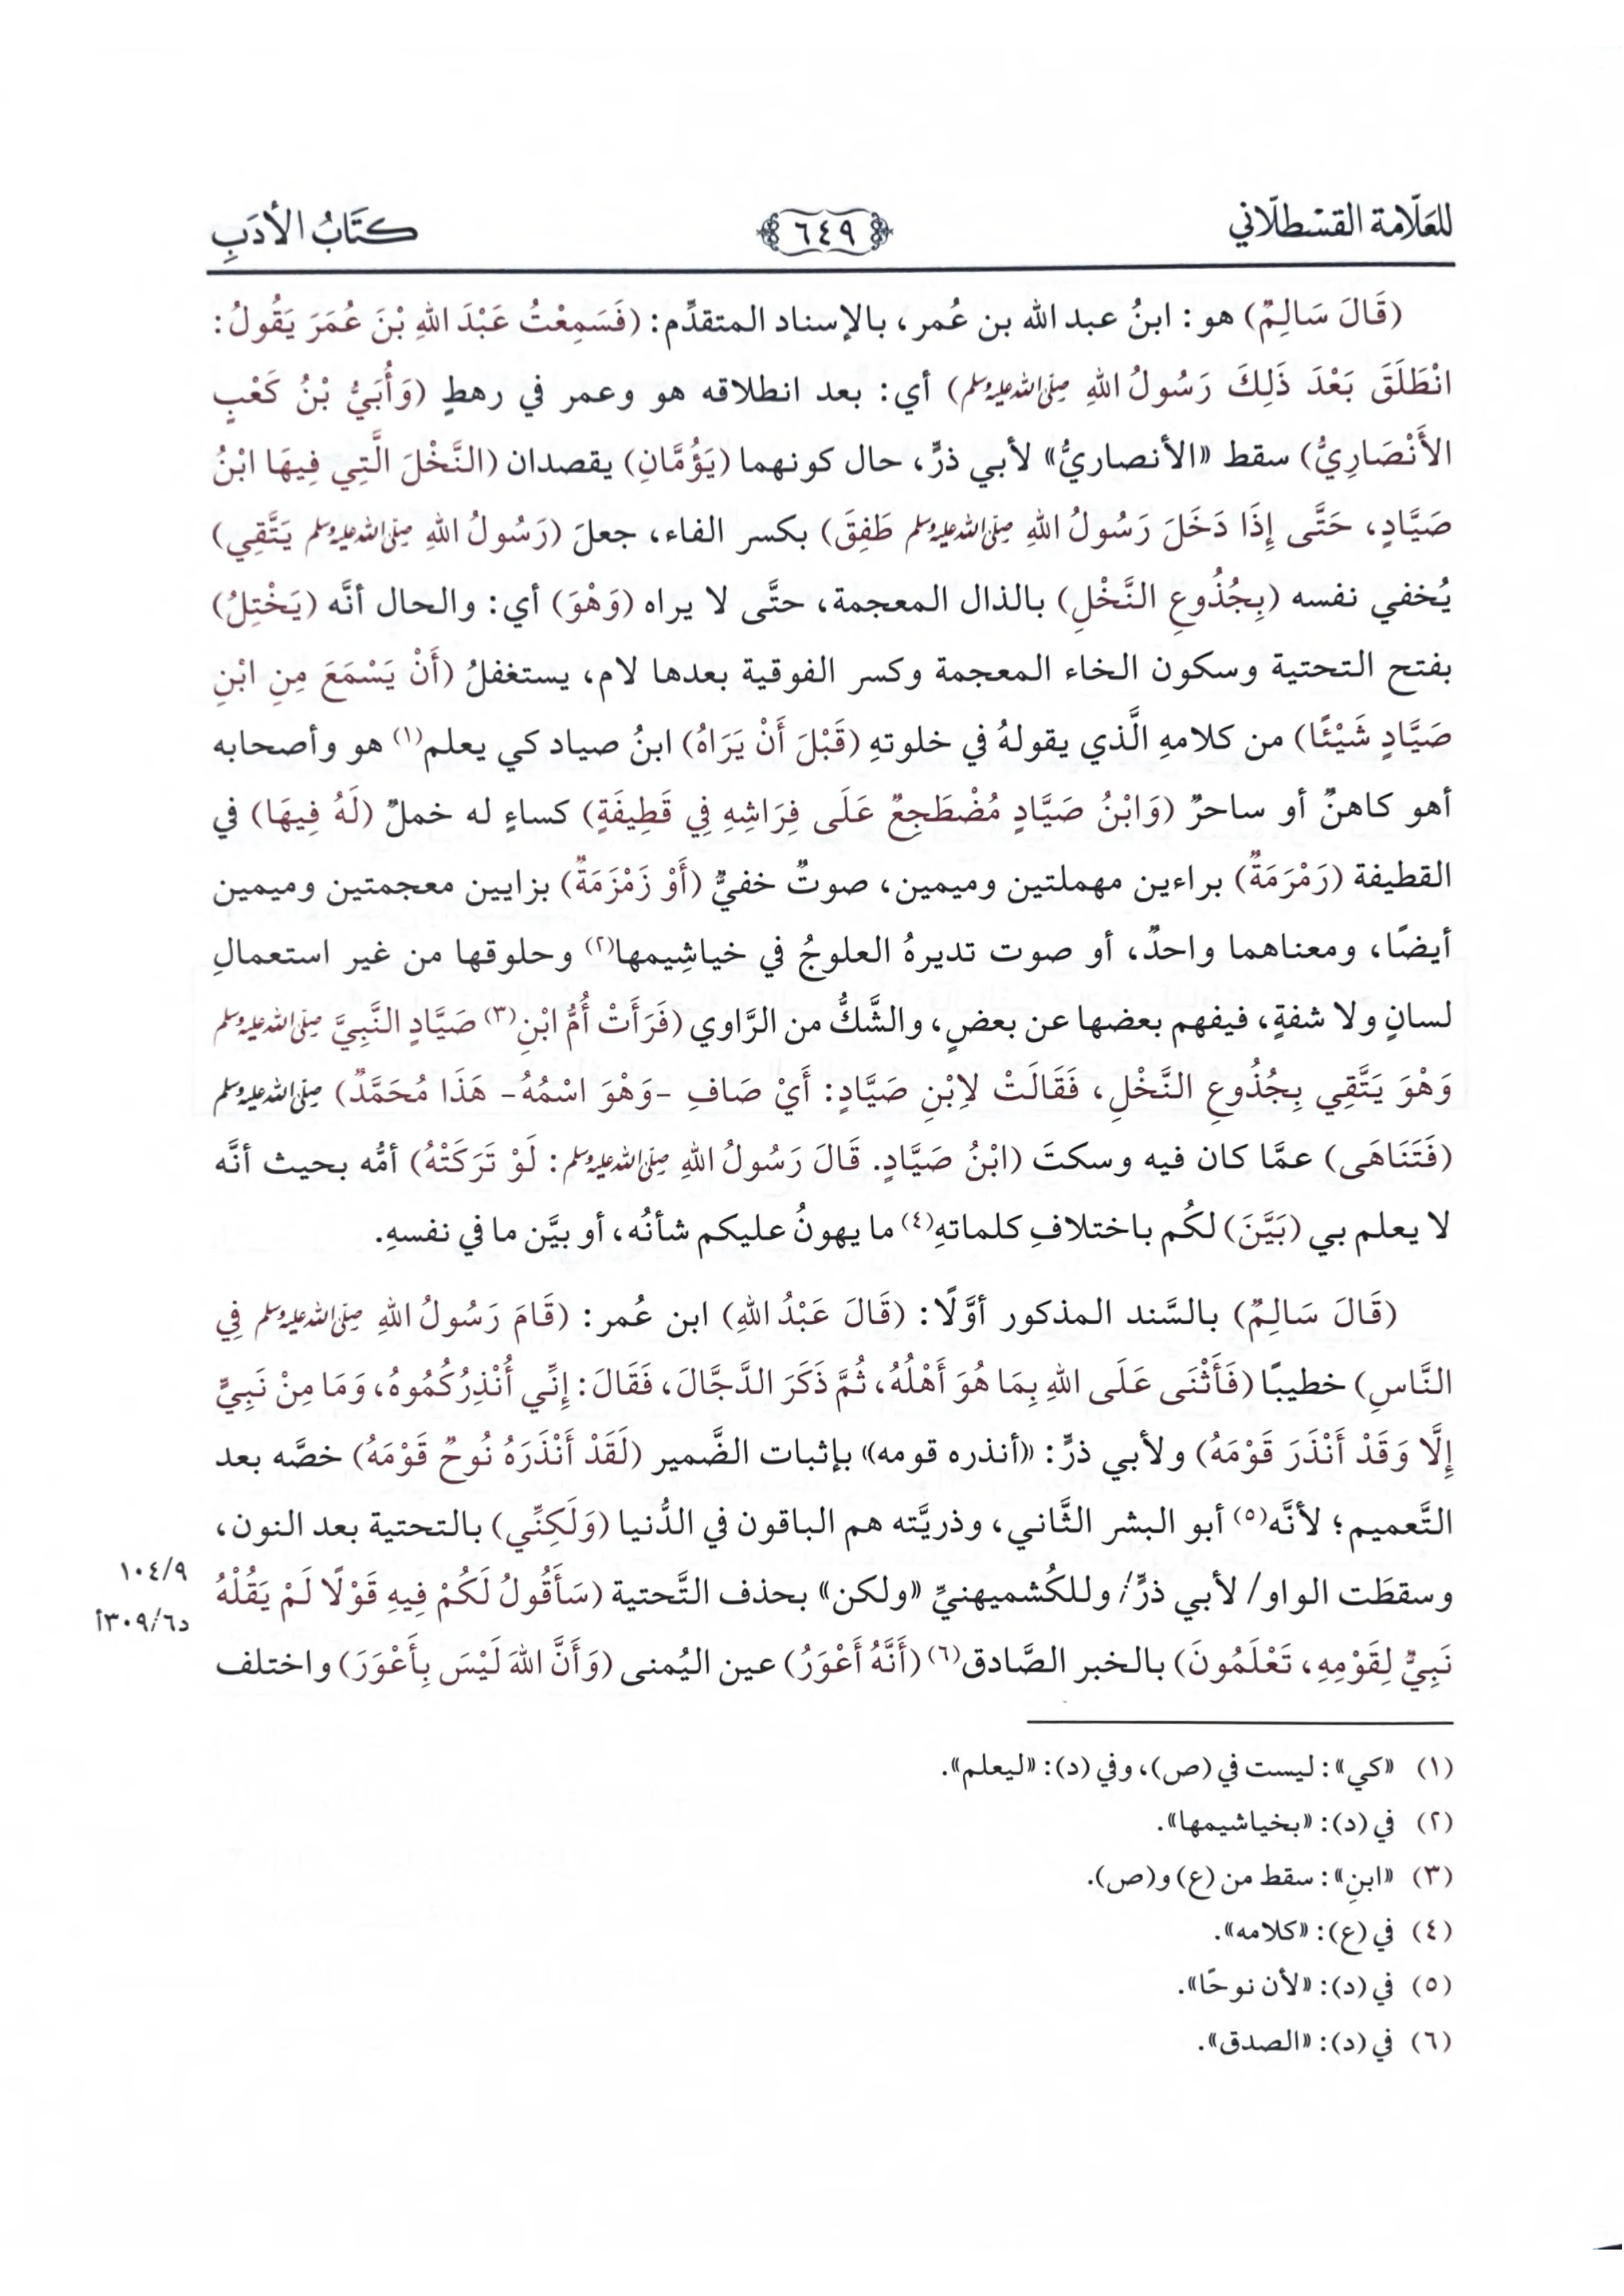 للعَلّامة القسْطلّاني ٦٤٩ كتَابُ الأدَبِ
(قَالَ سَالِمٌ) هو: ابنُ عبد الله بن عُمر، بالإسناد المتقدِّم: (فَسَمِعْتُ عَبْدَ اللهِ بْنَ عُمَرَ يَقُولُ:
انْطَلَقَ بَعْدَ ذَلِكَ رَسُولُ اللهِ صلى الله عليه وسلم) أي: بعد انطلاقه هو وعمر في رهطٍ (وَأُبَيُّ بْنُ كَعْبٍ
الأَنْصَارِيُّ) سقط «الأنصاريُّ» لأبي ذرٍّ، حال كونهما (يَؤُمَّانِ) يقصدان (النَّخْلَ الَّتِي فِيهَا ابْنُ
صَيَّادٍ، حَتَّى إِذَا دَخَلَ رَسُولُ اللهِ صلى الله عليه وسلم طَفِقَ) بكسر الفاء، جعلَ (رَسُولُ اللهِ صلى الله عليه وسلم يَتَّقِي)
يُخفي نفسه (بِجُذُوعِ النَّخْلِ) بالذال المعجمة، حتَّى لا يراه (وَهْوَ) أي: والحال أنَّه (يَخْتِلُ)
بفتح التحتية وسكون الخاء المعجمة وكسر الفوقية بعدها لام، يستغفلُ (أَنْ يَسْمَعَ مِنِ ابْنِ
صَيَّادٍ شَيْئًا) من كلامهِ الَّذي يقولهُ في خلوتهِ (قَبْلَ أَنْ يَرَاهُ) ابنُ صياد كي يعلم(١) هو وأصحابه
أهو كاهنٌ أو ساحرٌ (وَابْنُ صَيَّادٍ مُضْطَجِعٌ عَلَى فِرَاشِهِ فِي قَطِيفَةٍ) كساءٍ له خملٌ (لَهُ فِيهَا) في
القطيفة (رَمْرَمَةٌ) براءين مهملتين وميمين، صوتٌ خفيٌّ (أَوْ زَمْزَمَةٌ) بزايين معجمتين وميمين
أيضًا، ومعناهما واحدٌ، أو صوت تديرهُ العلوجُ في خياشِيمها(٢) وحلوقها من غير استعمالِ
لسانٍ ولا شفةٍ، فيفهم بعضها عن بعضٍ، والشَّكُّ من الرَّاوي (فَرَأَتْ أُمُّ ابْنِ(٣) صَيَّادٍ النَّبِيَّ صلى الله عليه وسلم
وَهْوَ يَتَّقِي بِجُذُوعِ النَّخْلِ، فَقَالَتْ لاِبْنِ صَيَّادٍ: أَيْ صَافِ -وَهْوَ اسْمُهُ- هَذَا مُحَمَّدٌ) صلى الله عليه وسلم
(فَتَنَاهَى) عمَّا كان فيه وسكتَ (ابْنُ صَيَّادٍ. قَالَ رَسُولُ اللهِ صلى الله عليه وسلم: لَوْ تَرَكَتْهُ) أمُّه بحيث أنَّه
لا يعلم بي (بَيَّنَ) لكُم باختلافِ كلماتهِ(٤) ما يهونُ عليكم شأنُه، أو بيَّن ما في نفسهِ.
(قَالَ سَالِمٌ) بالسَّند المذكور أوَّلًا: (قَالَ عَبْدُ اللهِ) ابن عُمر: (قَامَ رَسُولُ اللهِ صلى الله عليه وسلم فِي
النَّاسِ) خطيبًا (فَأَثْنَى عَلَى اللهِ بِمَا هُوَ أَهْلُهُ، ثُمَّ ذَكَرَ الدَّجَّالَ، فَقَالَ: إِنِّي أُنْذِرُكُمُوهُ، وَمَا مِنْ نَبِيٍّ
إِلَّا وَقَدْ أَنْذَرَ قَوْمَهُ) ولأبي ذرٍّ: «أنذره قومه» بإثبات الضَّمير (لَقَدْ أَنْذَرَهُ نُوحٌ قَوْمَهُ) خصَّه بعد
التَّعميم؛ لأنَّه(٥) أبو البشر الثَّاني، وذريَّته هم الباقون في الدُّنيا (وَلَكِنِّي) بالتحتية بعد النون،
وسقطَت الواو/ لأبي ذرٍّ/ وللكُشميهنيِّ «ولكن» بحذف التَّحتية (سَأَقُولُ لَكُمْ فِيهِ قَوْلًا لَمْ يَقُلْهُ
١٠٤/٩
د٣٠٩/٦أ
نَبِيٌّ لِقَوْمِهِ، تَعْلَمُونَ) بالخبر الصَّادق(٦) (أَنَّهُ أَعْوَرُ) عين اليُمنى (وَأَنَّ اللهَ لَيْسَ بِأَعْوَرَ) واختلف
(١) «كي»: ليست في (ص)، وفي (د): «ليعلم».
(٢) في (د): «بخياشيمها».
(٣) «ابنِ»: سقط من (ع) و(ص).
(٤) في (ع): «كلامه».
(٥) في (د): «لأن نوحًا».
(٦) في (د): «الصدق».